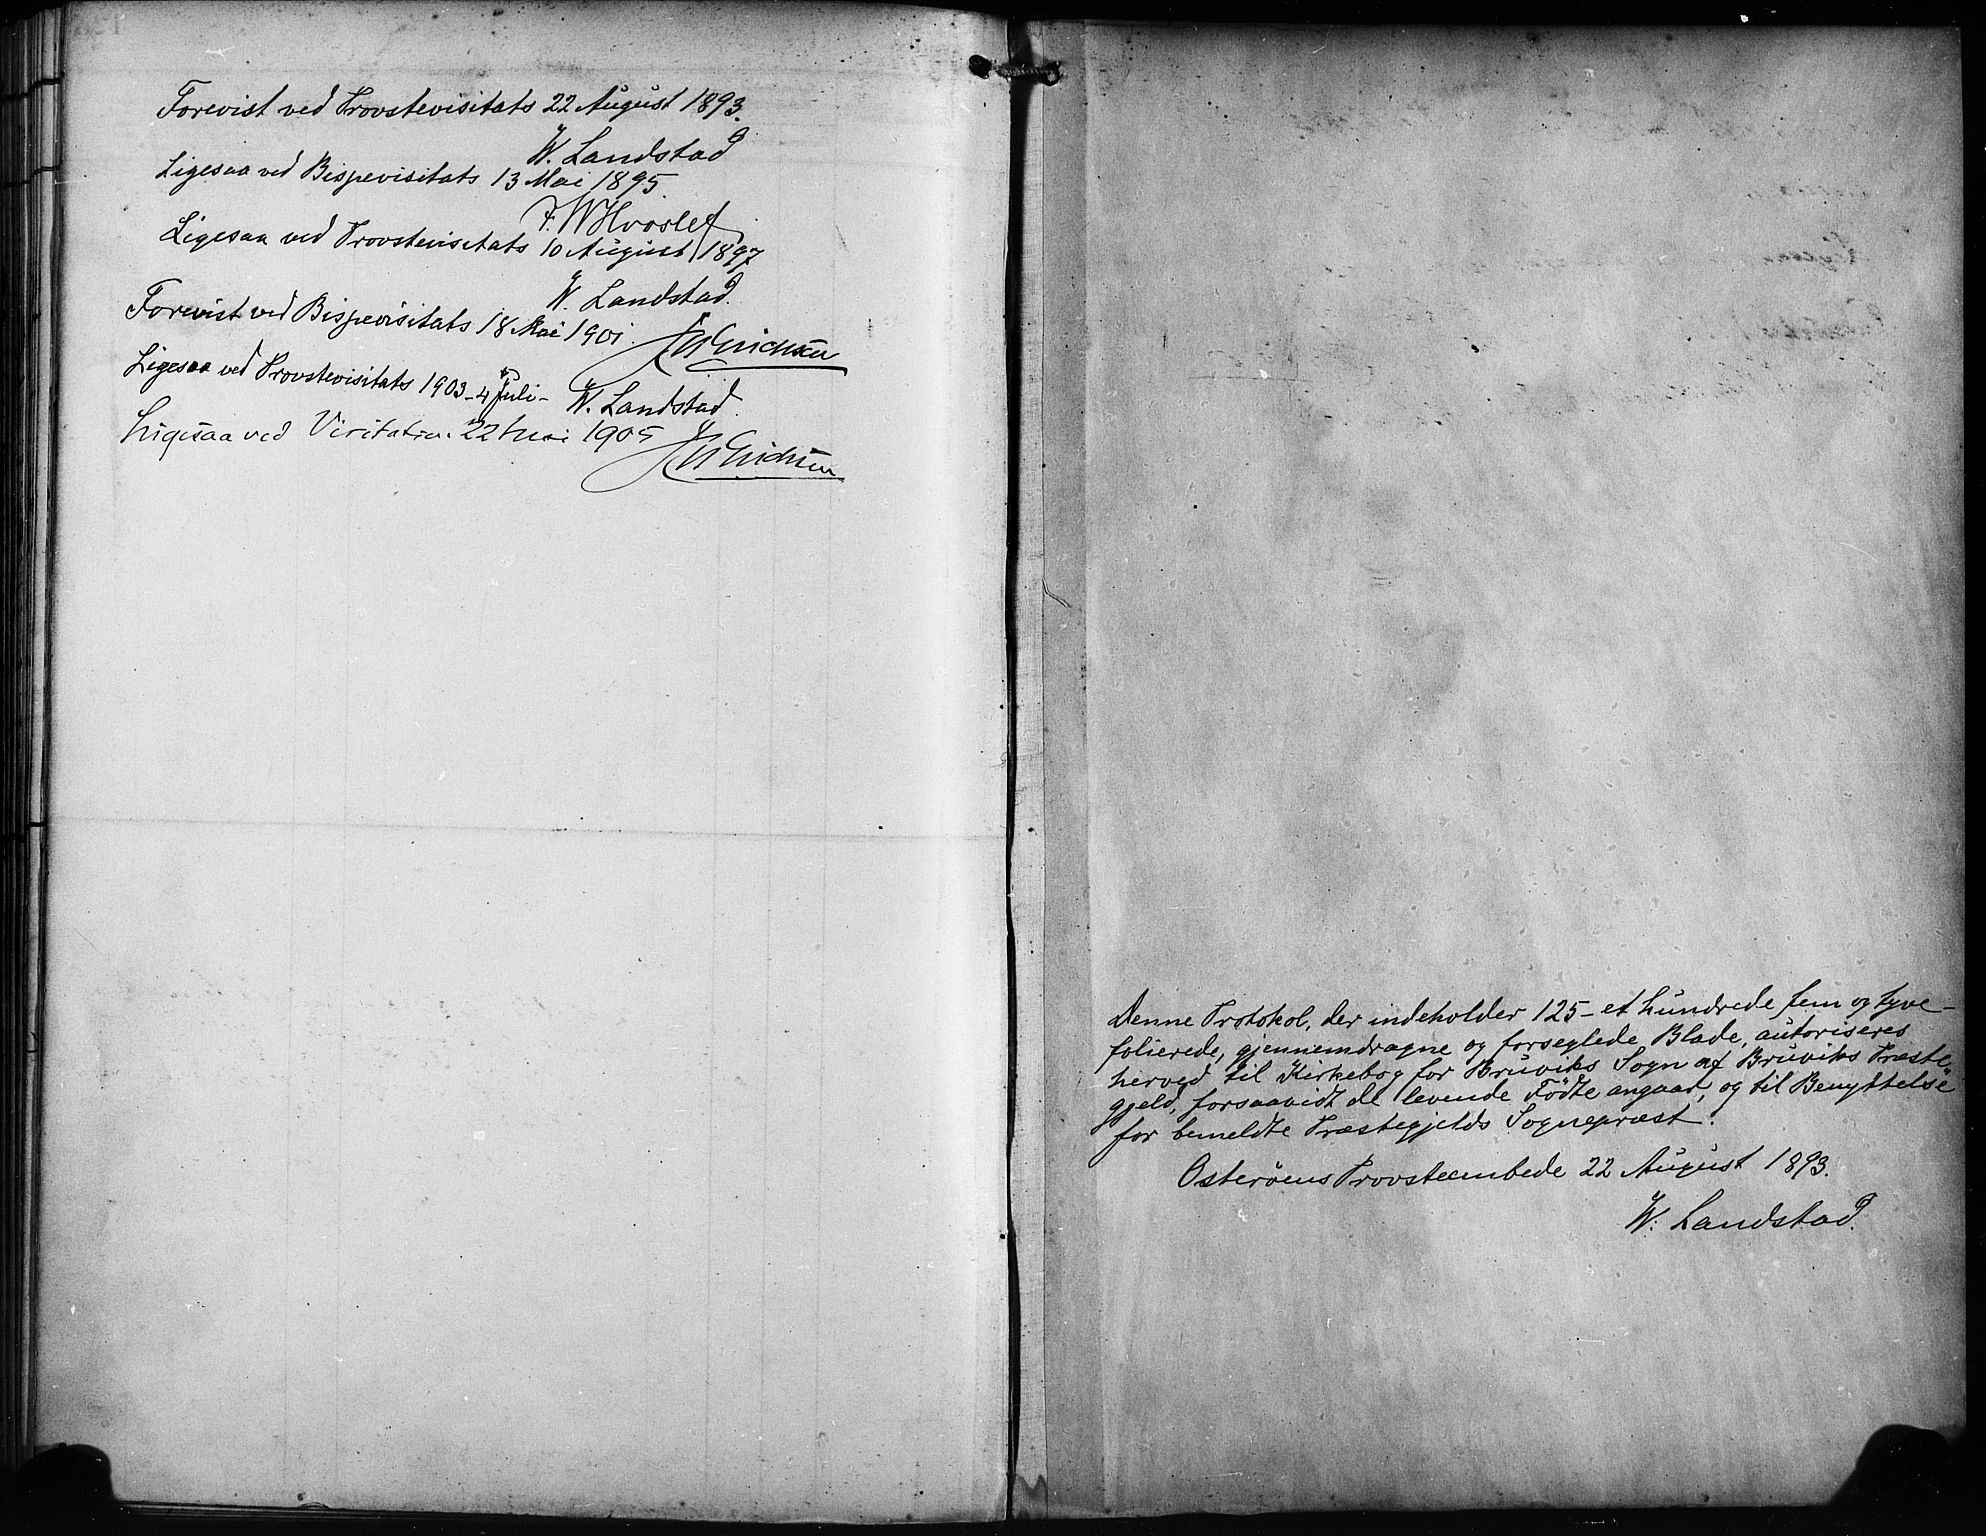 Forevist ved Provstevisitats 22 August 1893.
W. Landstad
Ligesaa ved Bispevisitats 13 Mai 1895
F. W Hvoslef
Ligesaa ved Provstevisitats 10 August 1897
W. Landstad.
Forevist ved Bispevisitats 18 Mai 1901.
Erichsen
Ligesaa ved Provstevisitats 1903 - 4 Juli -
W. Landstad.
Ligesaa ved Visitatsen 22 Mai 1905
Erichsen
Denne Protokol, der indeholder 125 - et hundrede fem og tyve -
folierede, gjennemdragne og forseglede Blade, autoriseres
herved til Kirkebog for Bruviks Sogn af Bruviks Præste
gjeld, forsaavidt de levende Födte angaar, og til Benyttelse
for bemeldte Præstegjelds Sognepræst.
Osteröens Provsteembede 22 August 1893.
W. Landstad.